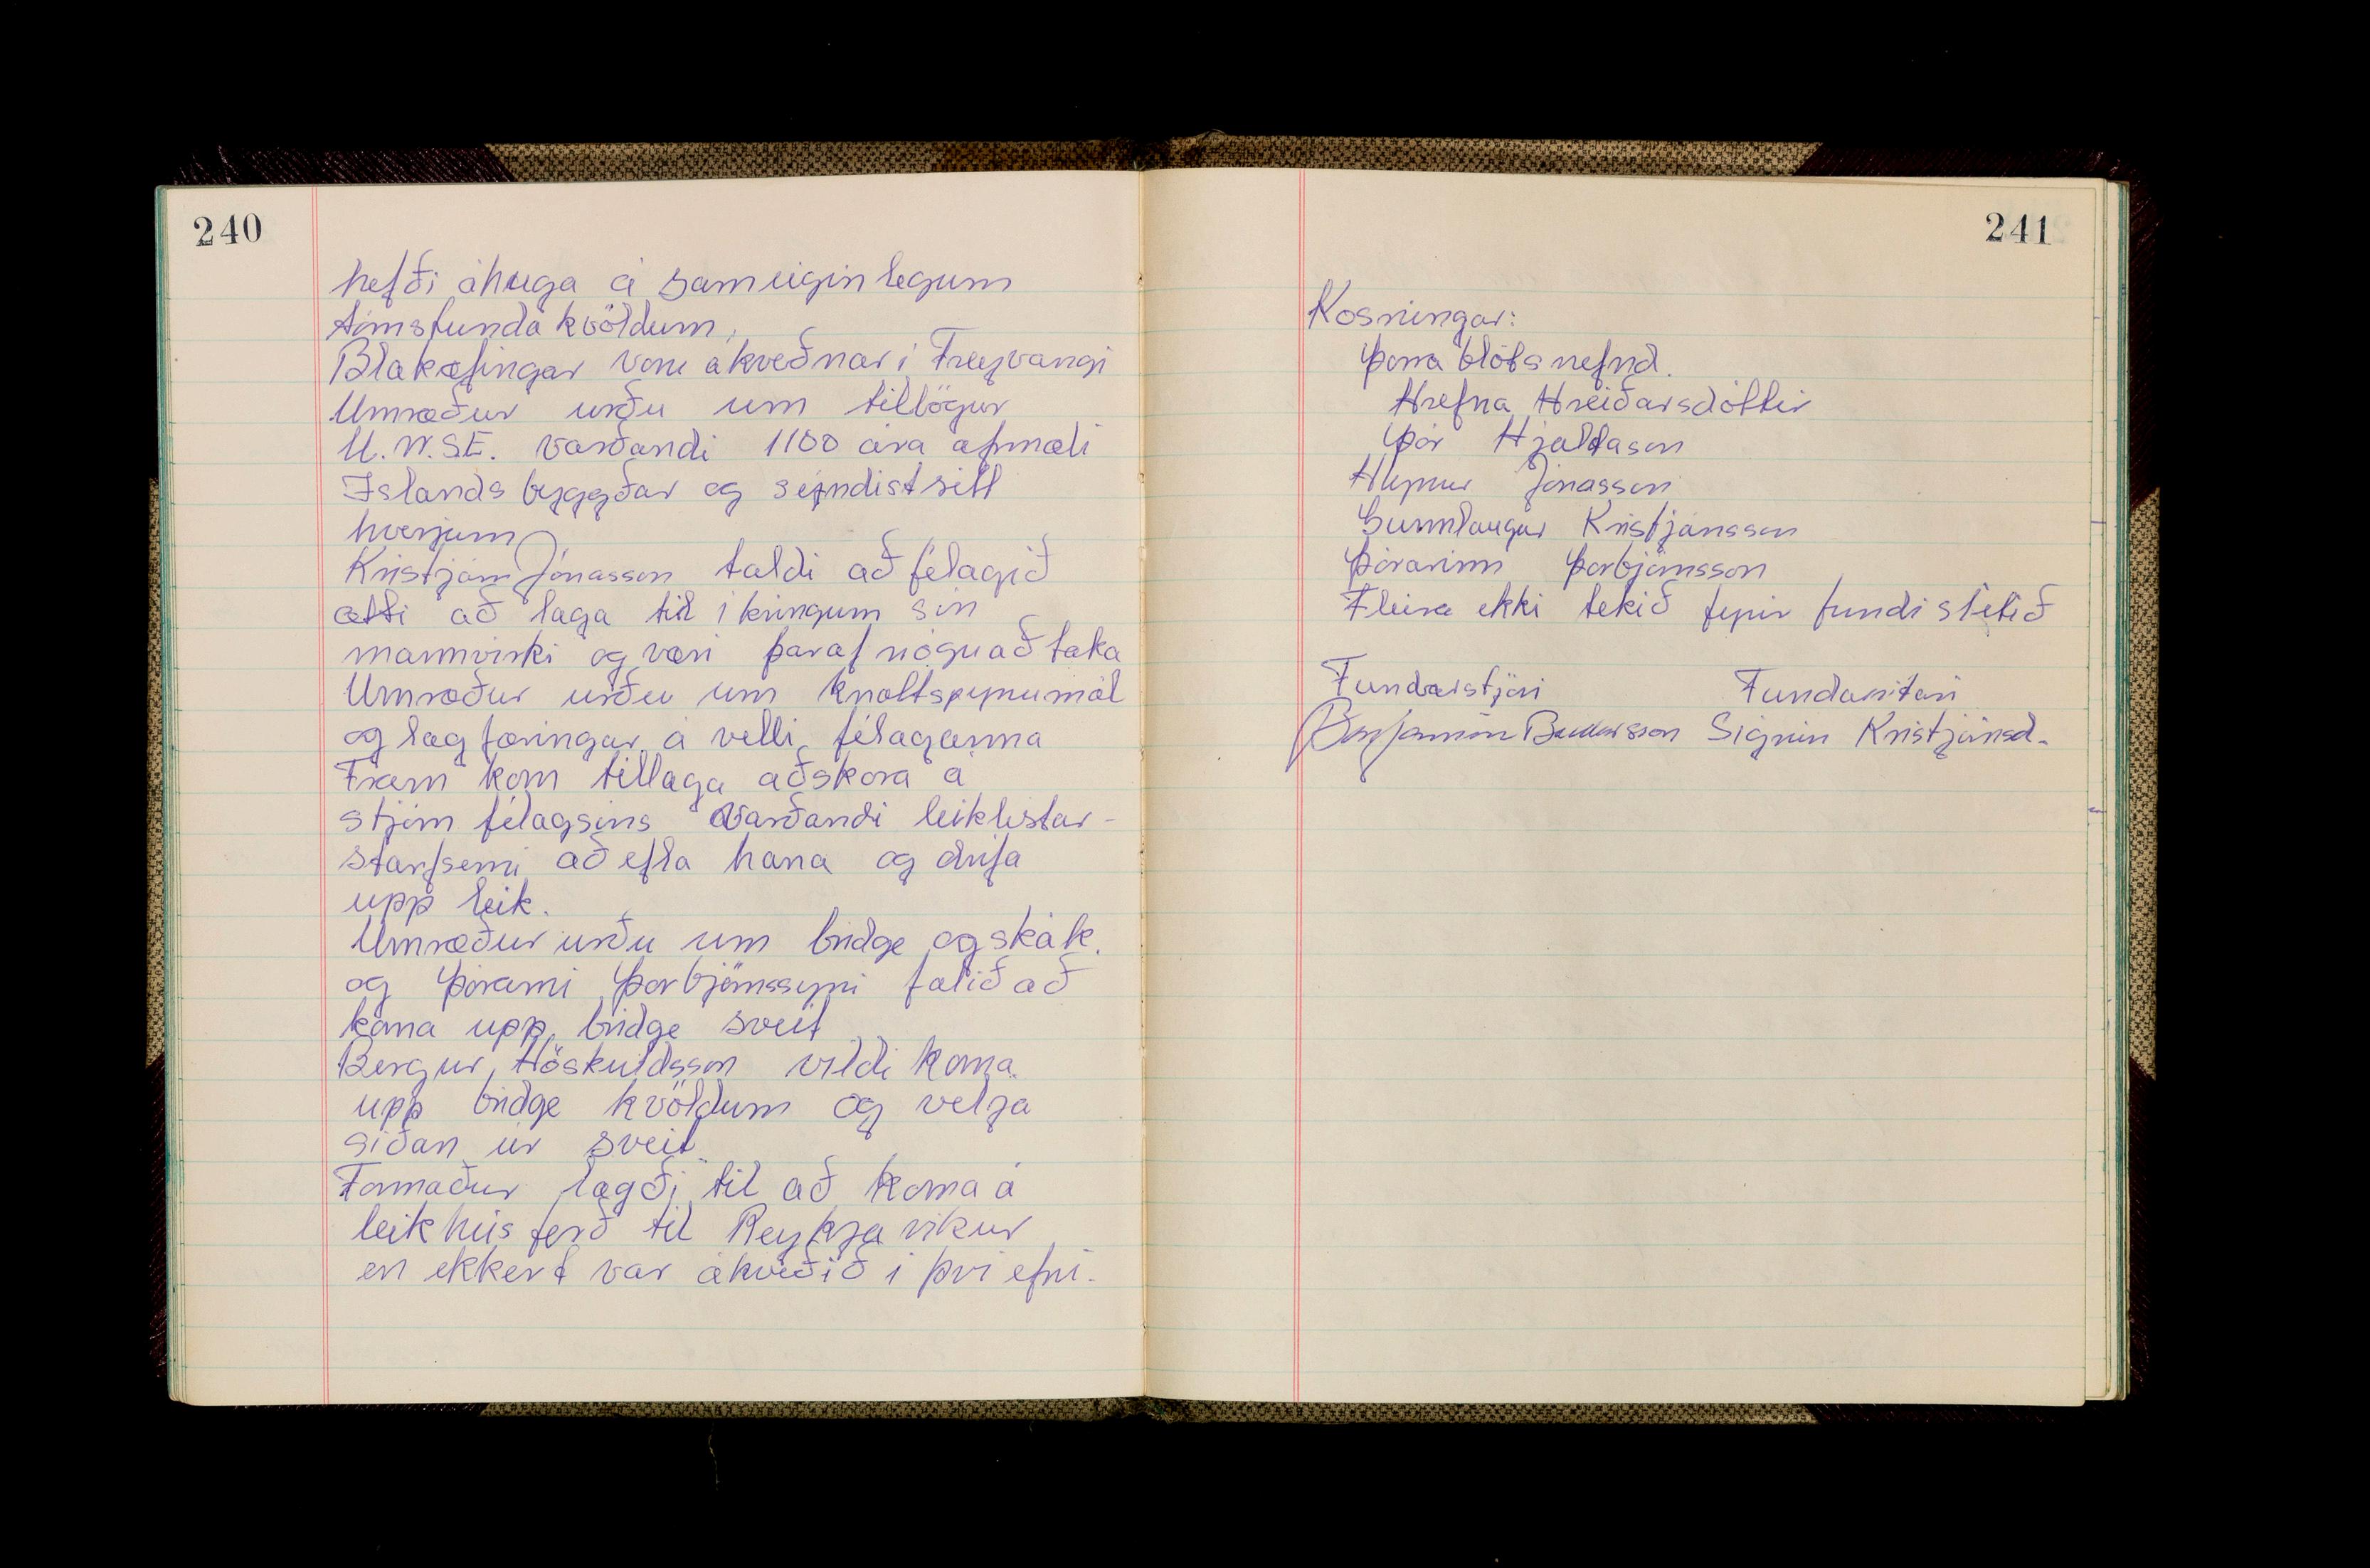 240
hefði áhuga á sameiginlegum
tómstundakvöldum,
Blakæfingar voru ákveðnar í Freyvangi
Umræður urðu um tillögur
U.M.S.E. varðandi 1100 ára afmæli
Íslands byggðar og sýndist sitt
hverjum
Kristján Jónasson taldi að félagið
ætti að laga til í kringum sín
mannvirki og væri þar af nógu að taka
Umræður urðu um knattspyrnumál
og lagfæringar á velli félaganna
Fram kom tillaga að skora á
stjórn félagsins varðandi leiklistar-
starfsemi að efla hana og drífa
upp leik.
Umræður urðu um bridge og skák.
og Þórarni Þorbjörnssyni falið að
koma upp bridge sveit
Bergur Höskuldsson vildi koma
upp bridge kvöldum og velja
síðan úr sveit
Formaður lagði til að koma á
leikhúsferð til Reykjavíkur
en ekkert var ákveðið í því efni.
241
Kosningar:
Þorrablótsnefnd.
Hrefna Hreiðarsdóttir
Þór Hjaltason
Hlynur Jónasson
Gunnlaugur Kristjánsson
Þórarinn Þorbjörnsson
Fleira ekki tekið fyrir fundi slitið
Fundarstjóri Fundarritari
Benjamín Baldursson Sigrún Kristjánsd.